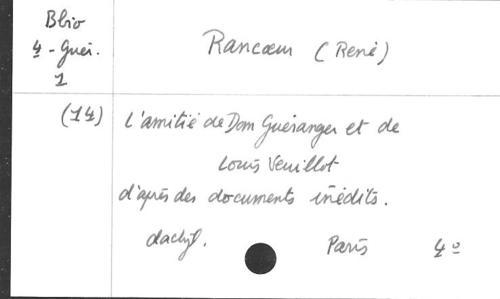 Bbio
4 - Guér.
1
Rancœur (René)
(14)
L'amitié de Dom Guéranger et de
Louis Veuillot
d'après des documents inédits.
dactyl. Paris 4º